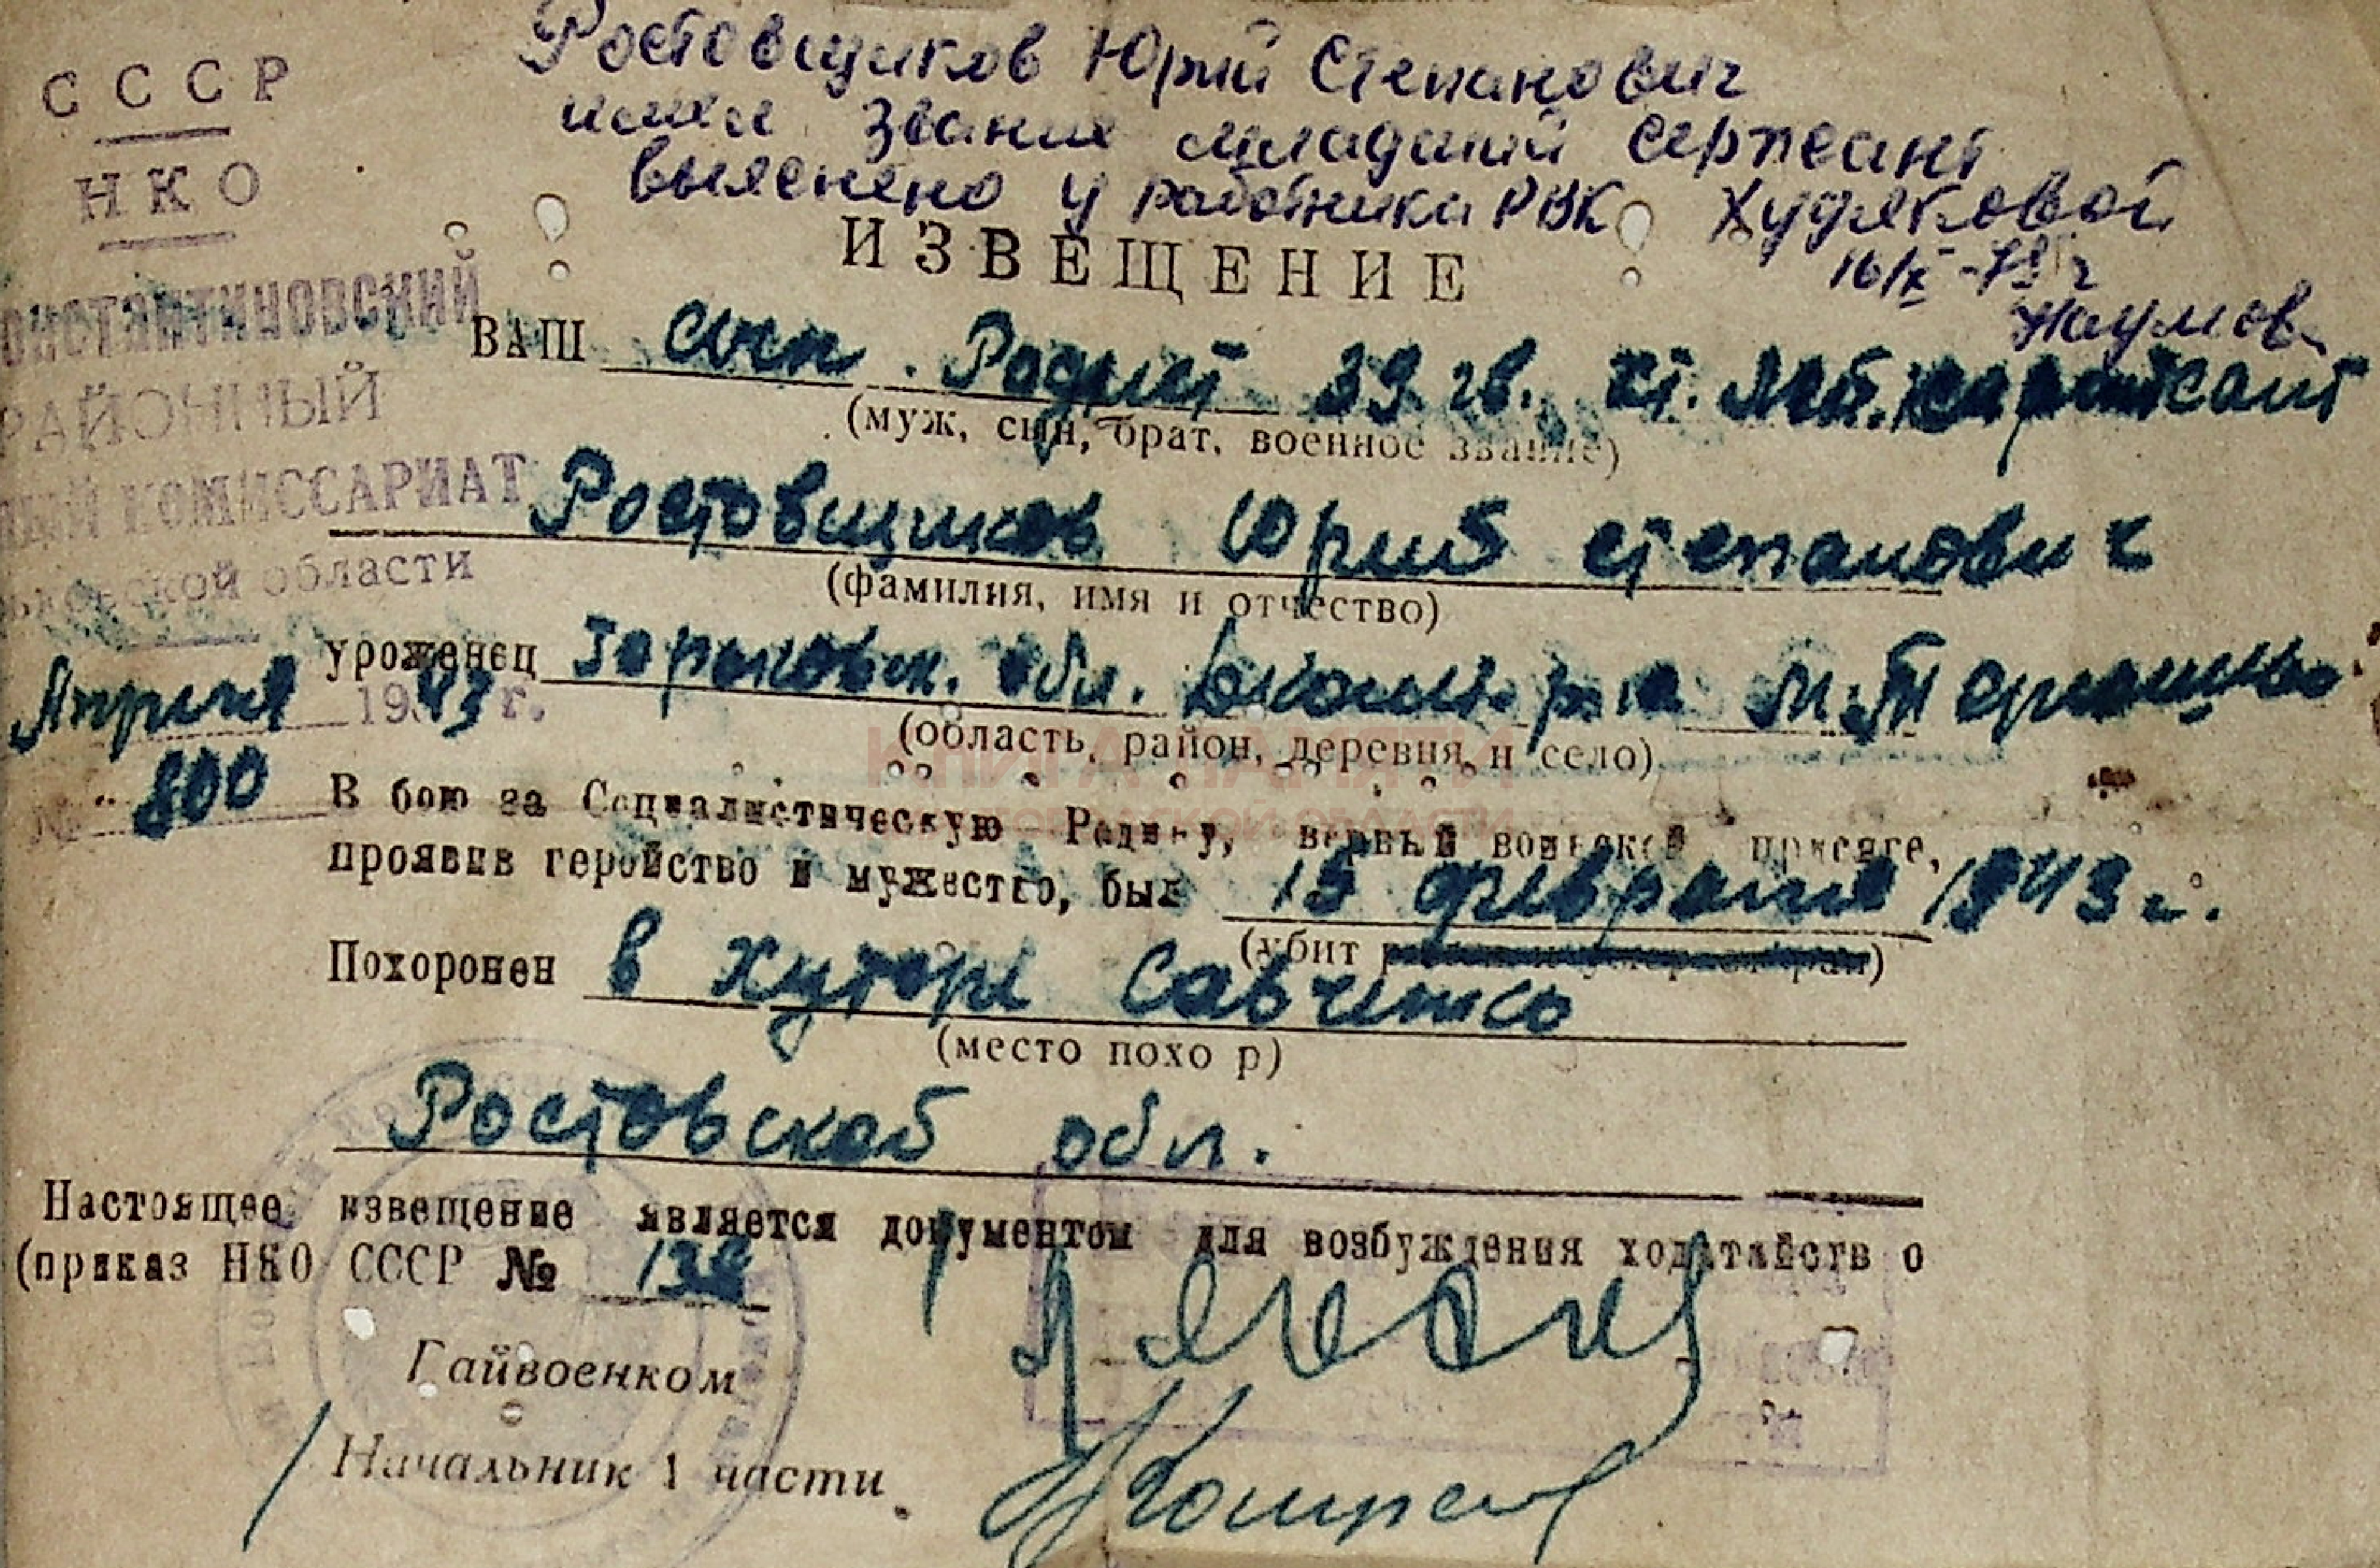 Ростовщиков Юрий Степанович
имел звание младший сержант
выяснено у работника РВК Худяковой
16/X-79 г
Наумов
СССР
НКО
КОНСТАНТИНОВСКИЙ
РАЙОННЫЙ
КОМИССАРИАТ
области
Апреля 1943 г.
№ 800
ИЗВЕЩЕНИЕ
ВАШ сын. Радист 39 гв. сержант
(муж, сын, брат, военное звание)
Ростовщиков Юрий Степанович
(фамилия, имя и отчество)
уроженец обл. М.
(область, район, деревня, и село)
КНИГА ПАМЯТИ
ОБЛАСТИ
В бою за Социалистическую Родину, верный воинской присяге,
проявив геройство и мужество, был 15 февраля 1943 г.
(убит)
Похоронен в хуторе Савченко
(место похо р)
Ростовской обл.
Настоящее извещение является документом для возбуждения ходатайств о
(приказ НКО СССР № 138
Райвоенком
Начальник 1 части